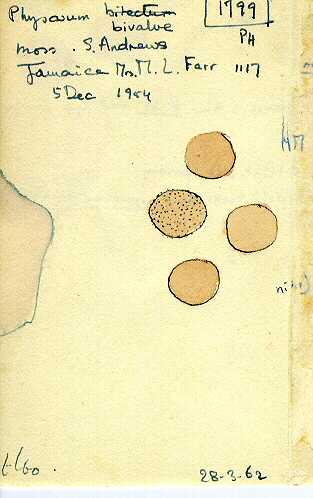 Physarum bitectum
bivalve
1799
PH
moss. S. Andrews
Jamaica Mrs. M. L. Farr 1117
5 Dec 1954
HM
28-3-62